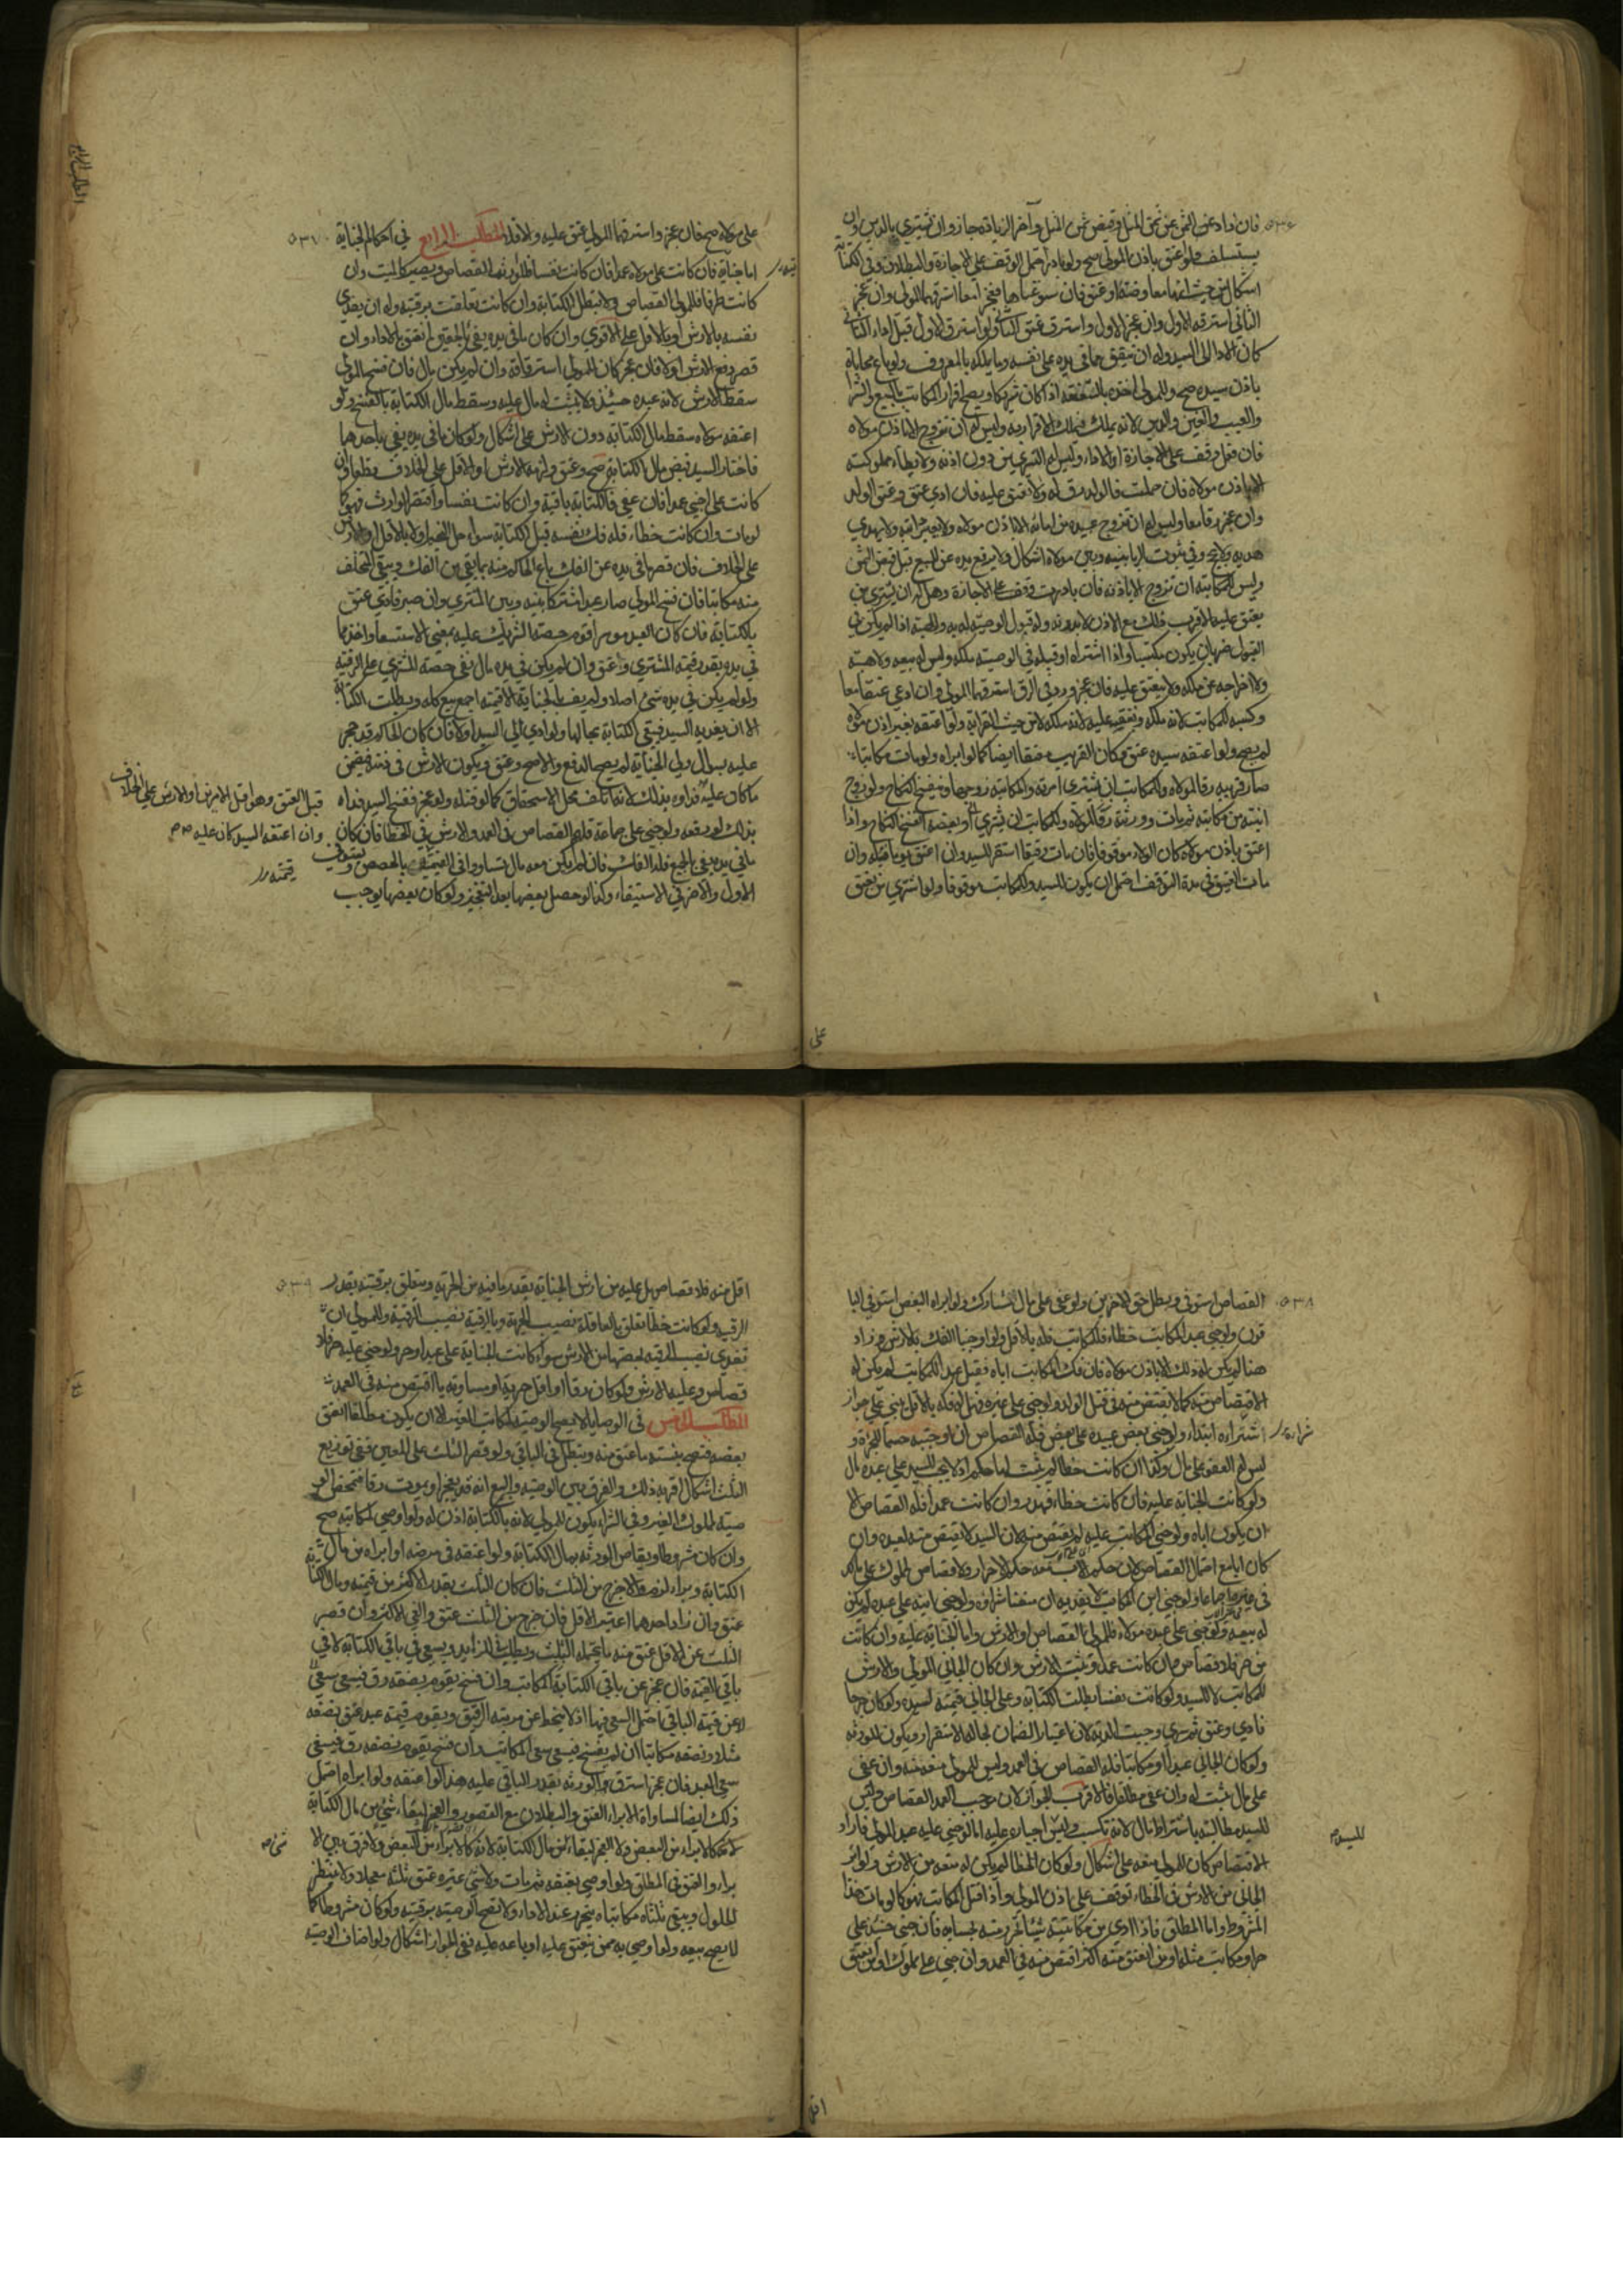 فان زاد عن الثمن عن ثمن المثل وقبض ثمن المثل وآخر الزيادة جاز وان تشتري بالدين وان
يستسلف ولو اعتق باذن المولى صح ولو بادر احتمل الوقف على الاجازة والبطلان وفي الكتابة
اشكال من حيث انها معاوضة او عتق فان سوغناها فعجزا معا استرقهما المولى وان عجز
الثاني استرقه الاول وان عجز الاول واسترق عتق الثاني ولو استرق الاول قبل اداء الثاني
كان الاداء الى السيد وله ان ينفق مما في يده على نفسه وما يملكه بالمعروف ولو باع محاباة
باذن سيده صح وللمولى اخذه بالشفعة اذا كان شريكا ويصح اقرار المكاتب بالبيع والشراء
والعيب والعين والدين لانه يملك فيملك الاقرار به وليس له ان يتزوج الا باذن مولاه
فان فعل وقف على الاجازة او الاداء وليس له التسري من دون اذنه ولا يطأ مملوكته
الا باذن مولاه فان حملت فالولد رق له ولا ينعتق عليه فان ادى عتق وعتق الولد
وان عجز رقا معا وليس له ان يزوج عبيده من امائه الا باذن مولاه ولا يعير دابة ولا يهدي
هدية ولا يحج وفي ثبوت الربا بينه وبين مولاه اشكال ولا يرفع يده عن المبيع قبل قبض الثمن
وليس للمكاتبة ان تتزوج الا باذنه فان بادرت وقف على الاجازة وهل له ان يشتري من
ينعتق عليه الاقرب ذلك مع الاذن لا بدونه وله قبول الوصية له به والهبة اذا لم يكن في
القبول ضرر بان يكون مكتسبا واذا اشتراه او قبله في الوصية ملكه وليس له بيعه ولا هبته
ولا اخراجه عن ملكه ولا ينعتق عليه فان عجز ورد في الرق استرقهما المولى وان ادى عتقا معا
وكسبه للمكاتب لانه ملكه ونفقته عليه لانه ملكه لا من حيث القرابة ولو اعتقه بغير اذن مولاه
لم يصح ولو اعتقه سيده عتق وكان القريب معتقا ايضا كما لو ابراه ولو مات مكاتبا
صار قريبه رقا لمولاه وللمكاتب ان يشتري امراته وللمكاتبة زوجها وينفسخ النكاح ولو زوج
ابنته من مكاتبه ثم مات وورثته رقا لمولاه وللمكاتب ان يشتري او بعضه انفسخ النكاح واذا
اعتق باذن مولاه كان الولاء موقوفا فان مات رقيقا استقر للسيد وان اعتق بها فهو له وان
مات العتيق في مدة التوقف احتمل ان يكون للسيد وللمكاتب موقوفا ولو اشترى من يعتق
على
على مولاه صح فان عجز واسترقهما المولى عتق عليه والا فلا المطلب الرابع في احكام الجناية
اما جناية فان كانت على مولاه عمدا فان كانت نفسا فلوارثه القصاص ويصير كالميت وان
كانت طرفا فللمولى القصاص ولا تبطل الكتابة وان كانت خطأ تعلقت برقبته وله ان يفدي
نفسه بالارش او بالاقل على الاقوى وان كان ما في يده يفي بالحقين انعتق بالاداء وان
قصر دفع الارش اولا فان عجز كان للمولى استرقاقه وان لم يكن مال فان فسخ المولى
سقط الارش لانه عبده حينئذ فلا يثبت له مال عليه وسقط مال الكتابة بالفسخ ولو
اعتقه مولاه سقط مال الكتابة دون الارش على اشكال ولو كان ما في يده يفي باحدهما
فاختار السيد قبض مال الكتابة صح وعتق ولزمه الارش او الاقل على الخلاف وان
كانت على اجنبي عمدا فان عفى فالكتابة باقية وان كانت نفسا واقتص الوارث فهو كما
لو مات وان كانت خطاء فله فك نفسه قبل الكتابة سواء حل النجم او لا بالاقل او بالارش
على الخلاف فان قصر ما في يده عن الفك باع الحاكم منه ما يفي من الفك ويبقى المتخلف
منه مكاتبا فان فسخ المولى صار عبدا مشتركا بينه وبين المشتري وان صبر فادى عتق
بالكتابة فان كان العبد موسرا قوم حصة الشريك عليه بمعنى الاستسعاء واخذ ما
في يده بقدر قيمة المشتري وعتق وان لم يكن في يده مال بقي حصة المشتري على الرقية
ولو لم يكن في يده شيء اصلا ولم يف بالجناية الا قيمته اجمع بيع كله وبطلت الكتابة
الا ان يفديه السيد فيبقى الكتابة بحالها ولو ادى الى السيد اولا فان كان الحاكم قد حجر
عليه بسؤال ولي الجناية لم يصح الدفع والا صح وعتق ويكون الارش في ذمته فيضمن
ما كان عليه فداؤه بذلك لانه اتلف محل الاستحقاق كما لو قتله ولو عجز ففسخ السيد فداه
بذلك او دفعه ولو جنى على جماعة فلهم القصاص في العمد والارش في الخطا فان كان
ما في يده يفي بالجميع فله الفك فان لم يكن معه مال تساووا في قيمته بالحصص ويستوى
الاول والآخر في الاستيفاء وكذا لو حصل بعضها بعد التعجيز ولو كان بعضها يوجب
قبل العتق وهو اقل الامرين او الارش على الخلاف
وان اعتقه السيد كان عليه
قيمته
المطلب الرابع
القصاص استوفى وبطل حق الآخرين ولو عفى على مال شارك ولو ابراه البعض استوفى الباقون
ولو جنى عبد المكاتب خطاء فللمكاتب فكه بالاقل ولو اوجبنا الفك بالارش وزاد
هنا لم يكن له ذلك الا باذن مولاه فان فك المكاتب اباه فقتل عبد المكاتب لم يكن له
الاقتصاص منه كما لا يقتص منه في قتل الولد ولو جنى على غيره وهل له فكه بالاقل مبني على جواز
اشتراءه ابتداء ولو جنى بعض عبيده على بعض فله القصاص ان اوجبته حسما للجرءة و
ليس له العفو على مال وكذا ان كانت خطا لم يثبت لها حكم اذ لا يجب للسيد على عبده مال
ولو كانت الجناية عليه فان كانت خطاء فهدر وان كانت عمدا فله القصاص الا
ان يكون اباه ولو جنى المكاتب عليه لم يقتص منه لان السيد لا يقتص منه لعبده وان
كان اباه احتمل القصاص لان حكم الاب معه حكم الاحرار ولا قصاص لمملوك على مالك
في غيرهما ولو جنى ابن المكاتب لا يفديه ان منعنا شراؤه ولو جنى ابنه على عبده لم يكن
له بيعه ولو جنى على عبد مولاه فللمولى القصاص او الارش واما الجناية عليه وان كانت
من حر فلا قصاص وان كانت عمدا ويثبت الارش وان كان الجاني المولى والارش
للمكاتب لا للسيد ولو كانت نفسا بطلت الكتابة وعلى الجاني قيمته لسيده ولو كان جرحا
فادى وعتق ثم سرى وجبت الدية لان اعتبار الضمان بحالة الاستقرار ويكون للورثة
ولو كان الجاني عبدا او مكاتبا فله القصاص في العمد وليس للمولى منعه منه وان عفى
على مال ثبت له وان عفى مطلقا فالاقرب الجواز لان موجب العمد القصاص وليس
للسيد مطالبته باشتراط مال لانه تكسب وليس اجباره عليه اما لو جنى عليه عبد المولى فاراد
الاقتصاص كان للمولى منعه على اشكال ولو كان الخطا لم يكن له منعه من الارش ولو ابرأ
الجاني من الارش في الخطاء توقف على اذن المولى واذا قتل المكاتب فهو كما لو مات هذا
المشروط واما المطلق فاذا ادى من مكاتبته شيئا تحرر منه بحسابه فان جنى حينئذ على
حر او مكاتب مثله او من انعتق منه اكثر اقتص منه في العمد وان جنى على مملوك او من انعتق
للسيد
اقل
اقل منه فلا قصاص بل عليه من ارش الجناية بقدر ما فيه من الحرية ويتعلق برقبته بقدر
الرقية ولو كانت خطا تعلق بالعاقلة نصيب الحرية وبالرقبة نصيب الرقية وللمولى ان
تفدي نصيب الرقية بحصتها من الارش سواء كانت الجناية على عبد او حر ولو جنى عليه حر فلا
قصاص وعليه الارش ولو كان رقا او اقل حرية او مساويه اقتص منه في العمد
المطلب الخامس في الوصايا لا يصح الوصية لمكاتب الغير الا ان يكون مطلقا انعتق
بعضه فتصح بنسبة ما عتق منه ويبطل في الباقي ولو قصر الثلث على المعين ففي توزيع
الثلث اشكال اقربه ذلك والفرق بين الوصية والبيع انه قد يعجز او يموت رقا فتمحض
صية لمملوك الغير وفي الشراء يكون للمولى لانه بالكتابة اذن له ولو اوصى لمكاتبه صح
وان كان مشروطا ويقاص الورثة بمال الكتابة ولو اعتقه في مرضه او ابراه من مال
الكتابة وبرا لزم والا خرج من الثلث فان كان الثلث بقدر الاكثر من قيمته ومال الكتابة
عتق وان زاد احدهما اعتبر الاقل فان خرج من الثلث عتق والغى الاكثر وان قصر
الثلث عن الاقل عتق منه ما يحتمله الثلث وبطلت الزايد ويسعى في باقي الكتابة لا في
باقي القيمة فان عجز عن باقي الكتابة
عن قيمة الباقي احتمل السعي فيهما اذ لا ينحط عن مرتبة الرقيق ويقوم قيمة عبد عتق نصفه
مثلا ونصفه مكاتبا ان لم يفسخ فيسعى سعي المكاتب وان فسخ يقوم بنصفه رق فيسعى
سعي العبد فان عجز استرق الورثة بقدر الباقي عليه هذا لو اعتقه ولو ابراه احتمل
ذلك ايضا لمساواة الابراء العتق والبطلان مع القصور والعجز لبقاء شيء من مال الكتابة
كالابراء من البعض ولا العجز لبقاء من مال الكتابة لانه كالابراء من البعض ولا فرق بين الا
براء والعتق في المطلق ولو اوصى بعتقه ثم مات ولا شيء غيره عتق ثلثه معجلا ولا ينتظر
الحلول ويبقى ثلثاه مكاتبا يتحرر عند الاداء ولا تصح الوصية برقبته ولو كان مشروطا كما
لا يصح بيعه ولو اوصى به لمن ينعتق عليه او باعه عليه ففي الجواز اشكال ولو اضاف الوصية